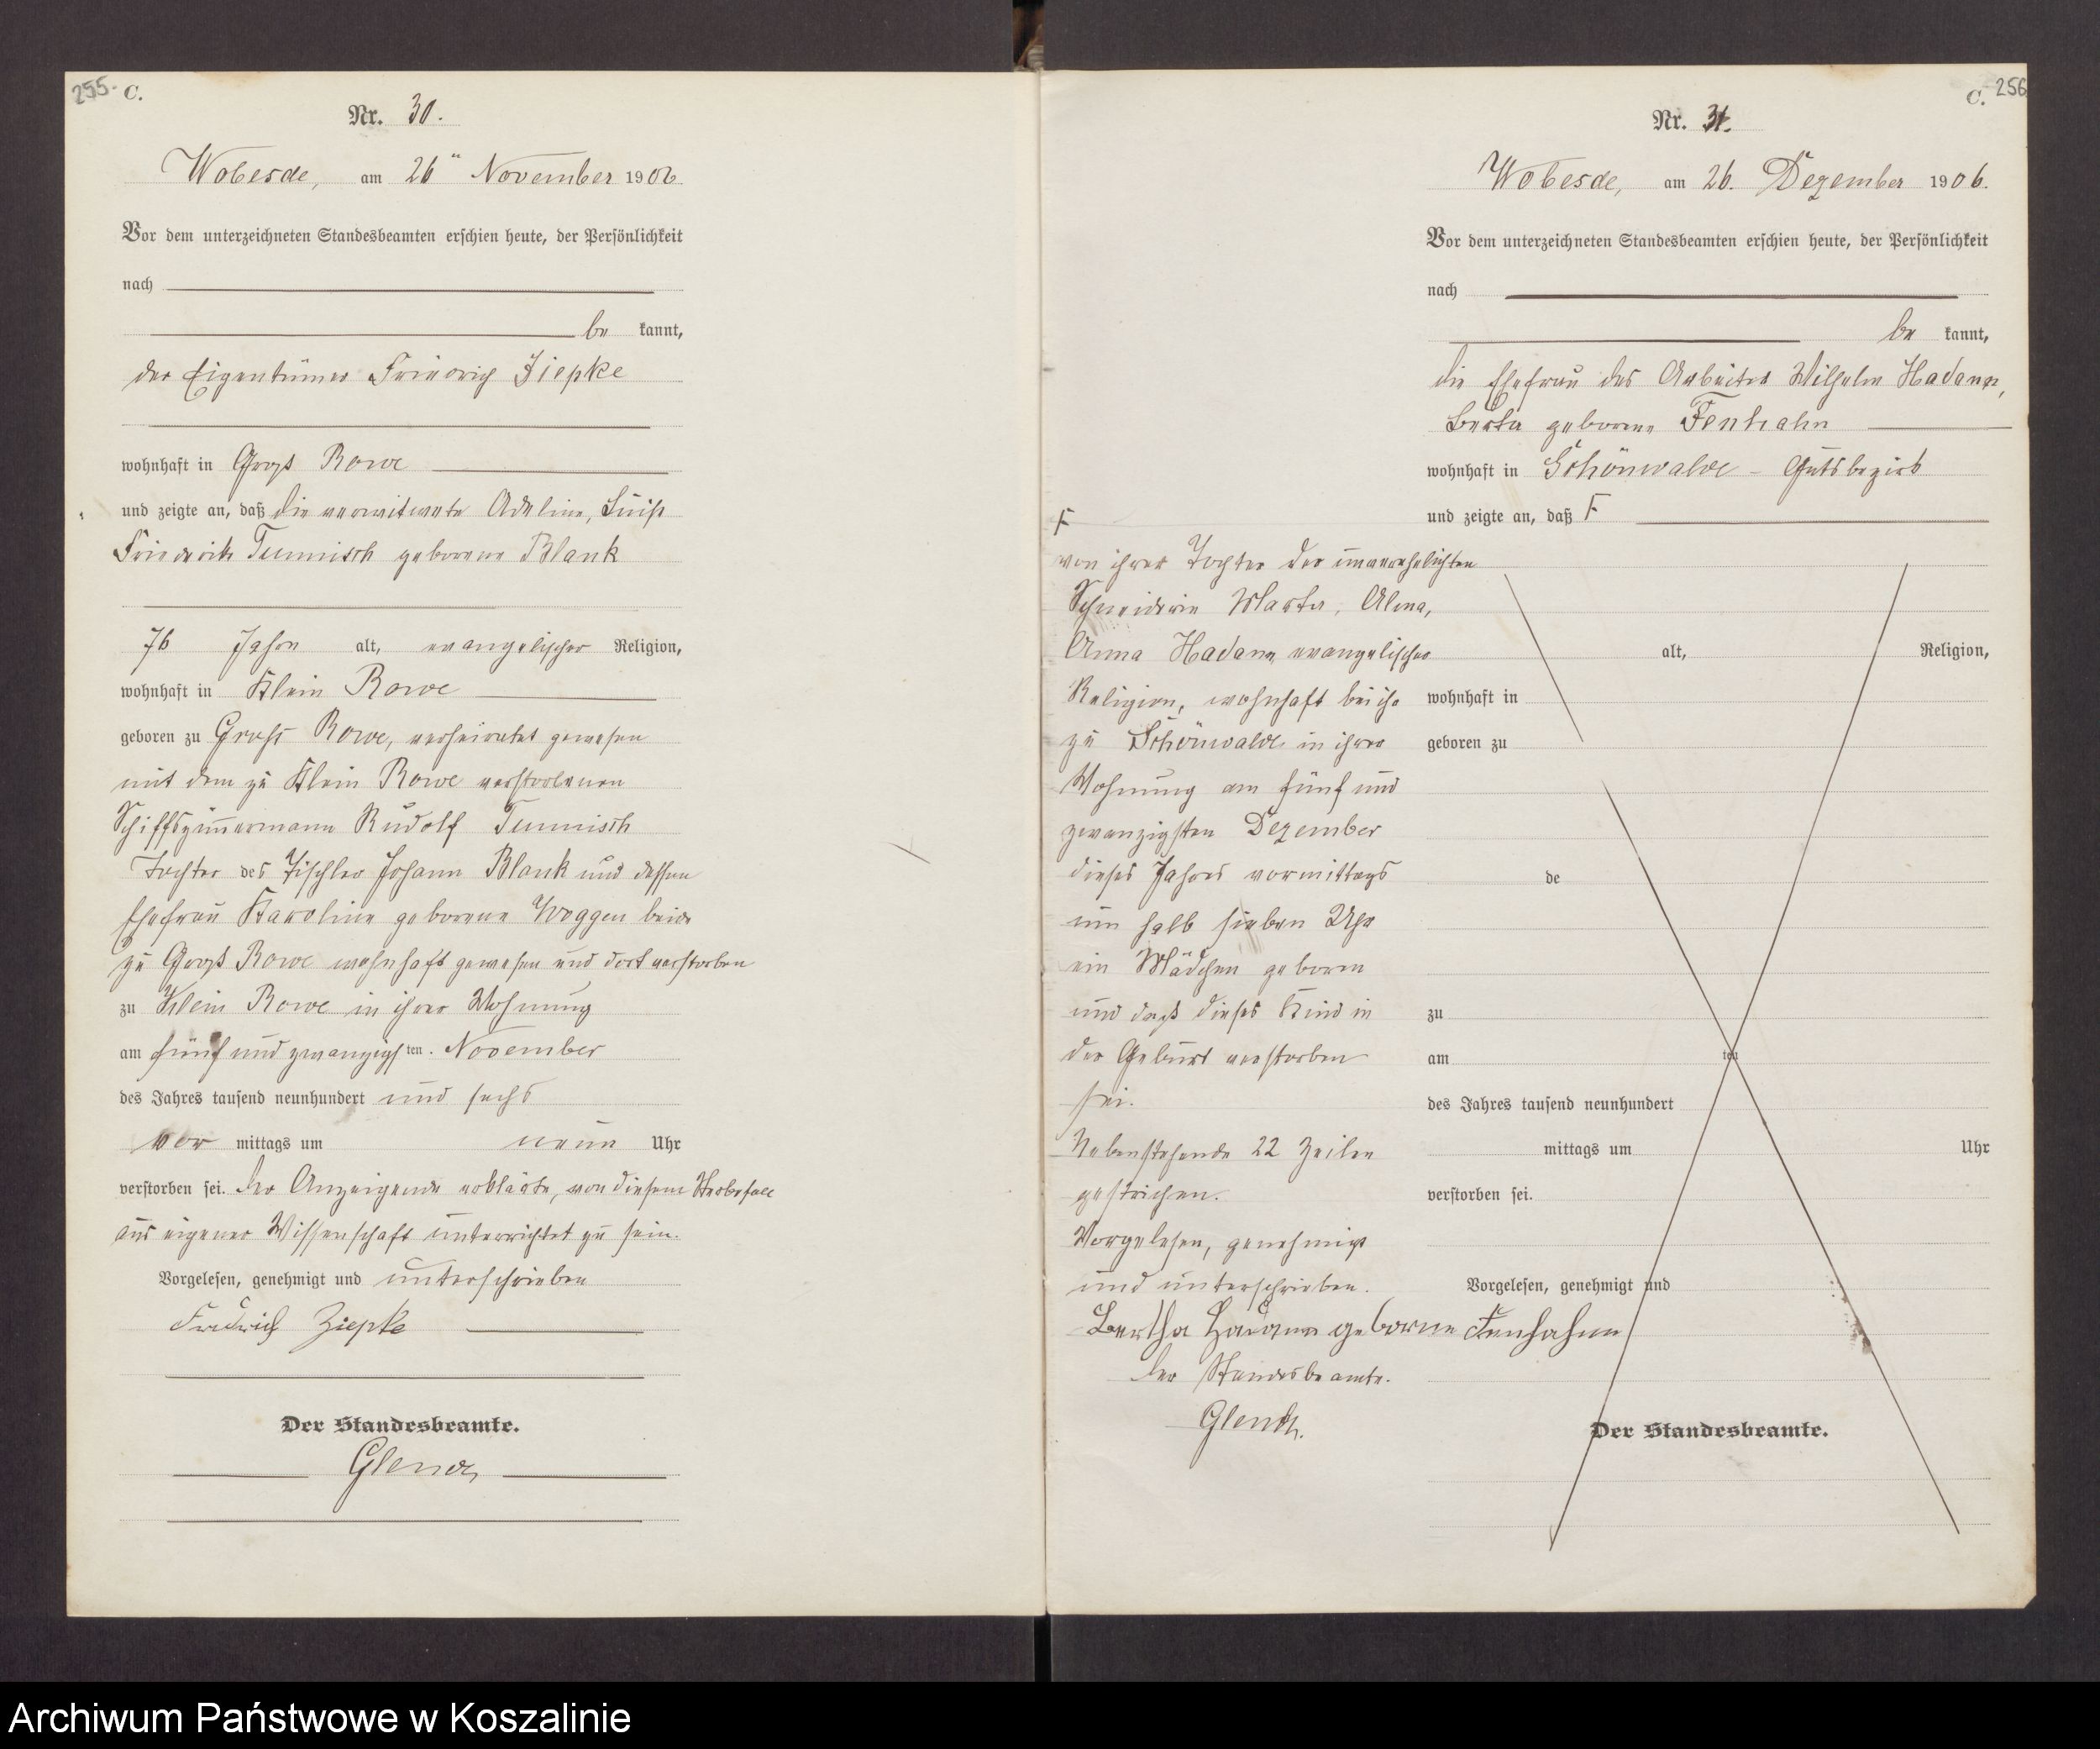 255. C.
Nr. 30.
Wobesde, am 26ⁿ November 1906
Vor dem unterzeichneten Standesbeamten erschien heute, der Persönlichkeit
nach
be kannt,
der Eigentümer Friedrich Ziepke
wohnhaft in Groß Rowe
und zeigte an, daß die verwitwete Adeline, Luise
Friederike Tummisch geborene Blank
76 Jahre alt, evangelischer Religion,
wohnhaft in Klein Rowe
geboren zu Groß Rowe, verheiratet gewesen
mit dem zu Klein Rowe verstorbenen
Schiffszimmermann Rudolf Tummisch
Tochter des Tischler Johann Blank und dessen
Ehefrau Karoline geborene Woggen beide
zu Groß Rowe wohnhaft gewesen und dort verstorben
zu Klein Rowe in ihrer Wohnung
am fünf und zwanzigsten November
des Jahres tausend neunhundert und sechs
vor mittags um neun Uhr
verstorben sei. Der Anzeigende erklärte, von diesem Sterbefall
aus eigener Wissenschaft unterrichtet zu sein.
Vorgelesen, genehmigt und unterschrieben
Friedrich Ziepke
Der Standesbeamte.
C. 256
Nr. 31.
Wobesde, am 26. Dezember 1906.
Vor dem unterzeichneten Standesbeamten erschien heute, der Persönlichkeit
nach
be kannt,
die Ehefrau des Arbeiters Wilhelm Hadann,
Berta geborene Fenhahn
wohnhaft in Schönwalde - Gutsbezirk
und zeigte an, daß F
F
von ihrer Tochter der unverehelichten
Schneiderin Marta, Alma,
Anna Hadann evangelischer alt, Religion,
Religion, wohnhaft bei ihr wohnhaft in
zu Schönwalde in ihrer geboren zu
Wohnung am fünf und
zwanzigsten Dezember
dieses Jahres vormittags de
um halb sieben Uhr
ein Mädchen geboren
und daß dieses Kind in zu
der Geburt verstorben am ten
sei. des Jahres tausend neunhundert
Nebenstehende 22 Zeilen mittags um Uhr
gestrichen. verstorben sei.
Vorgelesen, genehmigt
und unterschrieben. Vorgelesen, genehmigt und
Bertha Hadann geborne Fenhahn
Der Standesbeamte.
Der Standesbeamte.
Archiwum Państwowe w Koszalinie